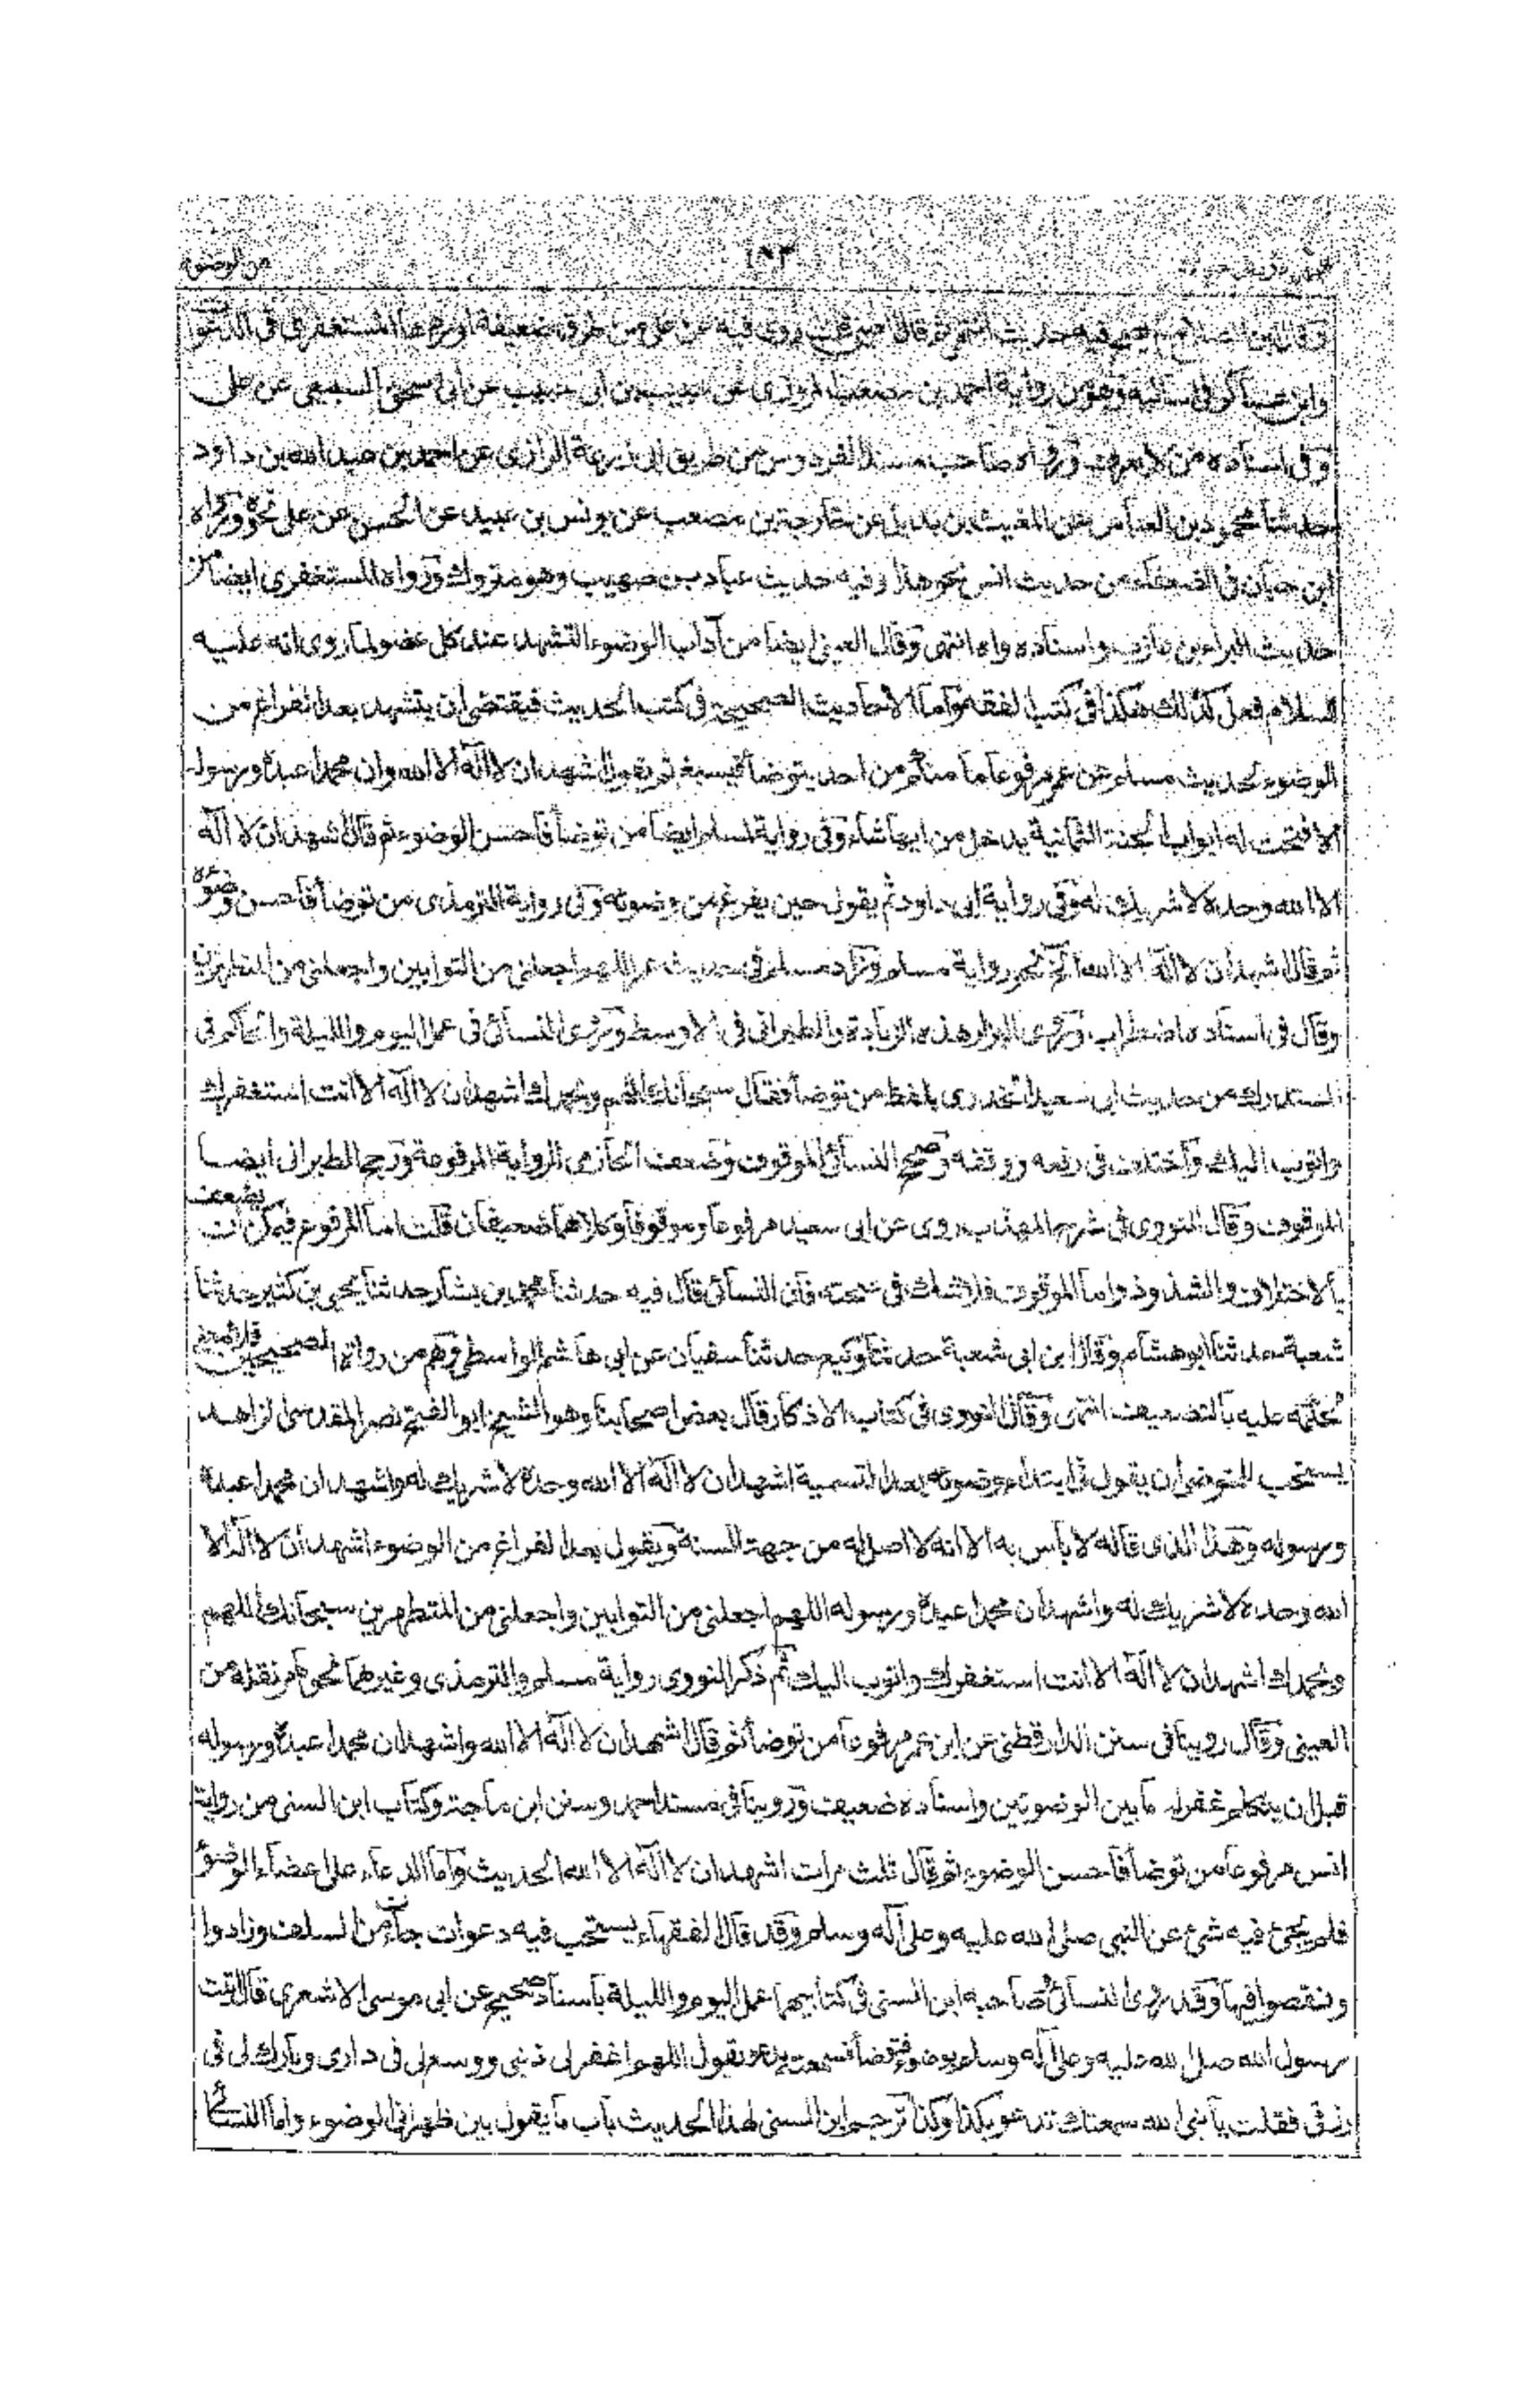 ١٨٣ من الوضوء
وقال ابن الصلاح لم يصح فيه حديث انتهى ثم قال قلت روى فيه عن على من طرق ضعيفة اوردها المستغفرى فى الدعوات
وابن عساكر فى اماليه وهو من رواية احمد بن مصعب المروزى عن حبيب بن ابى حبيب عن ابى اسحق السبيعى عن على
وفى اسناده من لا يعرف ورواه صاحب مسند الفردوس من طريق ابى زرعة الرازى عن احمد بن عبد الله بن داود
حدثنا محمود بن العباس عن المغيث بن بديل عن خارجة بن مصعب عن يونس بن عبيد عن الحسن عن على نحوه ورواه
ابن حبان فى الضعفاء من حديث انس نحو هذا وفيه حديث عباد بن صهيب وهو متروك ورواه المستغفرى ايضا من
حديث البراء بن عازب واسناده واه انتهى وقال العينى ايضا من آداب الوضوء التشهد عند كل عضو لما روى انه عليه
السلام فعل كذلك هكذا فى كتب الفقه واما الاحاديث الصحيحة فى كتب الحديث فيقتضى ان يتشهد بعد الفراغ من
الوضوء لحديث مسلم عن عمر مرفوعا ما منكم من احد يتوضأ فيسبغ ثم يقول اشهد ان لا اله الا الله وان محمدا عبده ورسوله
الا فتحت له ابواب الجنة الثمانية يدخل من ايها شاء وفى رواية لمسلم ايضا من توضأ فاحسن الوضوء ثم قال اشهد ان لا اله
الا الله وحده لا شريك له وفى رواية ابى داود ثم يقول حين يفرغ من وضوئه وفى رواية الترمذى من توضأ فاحسن وضوءه
ثم قال اشهد ان لا اله الا الله الخ نحو رواية مسلم وزاد مسلم فى حديث عمر اللهم اجعلنى من التوابين واجعلنى من المتطهرين
وقال فى اسناده اضطراب وروى البزار هذه الزيادة والطبرانى فى الاوسط وروى النسائى فى عمل اليوم والليلة والحاكم فى
المستدرك من حديث ابى سعيد الخدرى بلفظ من توضأ فقال سبحانك اللهم وبحمدك اشهد ان لا اله الا انت استغفرك
واتوب اليك واختلف فى رفعه ووقفه وصحح النسائى الموقوف وضعف الحازمى الرواية المرفوعة ورجح الطبرانى ايضا
الموقوف وقال النووى فى شرح المهذب روى عن ابى سعيد مرفوعا وموقوفا وكلاهما ضعيفان قلت اما المرفوع فيمكن ان يضعف
بالاختلاف والشذوذ واما الموقوف فلا شك فى صحته فان النسائى قال فيه حدثنا محمد بن بشار حدثنا يحيى بن كثير حدثنا
شعبة حدثنا ابو هشام وقال ابن ابى شعبة حدثنا وكيع حدثنا سفيان عن ابى هاشم الواسطى وهم من رواة الصحيحين فلا معنى
لحكمه عليه بالتضعيف انتهى وقال النووى فى كتاب الاذكار قال بعض اصحابنا وهو الشيخ ابو الفتح نصر المقدسى الزاهد
يستحب للمتوضى ان يقول فى ابتداء وضوئه بعد التسمية اشهد ان لا اله الا الله وحده لا شريك له واشهد ان محمدا عبده
ورسوله وهذا الذى قاله لا بأس به الا انه لا اصل له من جهة السنة ويقول بعد الفراغ من الوضوء اشهد ان لا اله الا
الله وحده لا شريك له واشهد ان محمدا عبده ورسوله اللهم اجعلنى من التوابين واجعلنى من المتطهرين سبحانك اللهم
وبحمدك اشهد ان لا اله الا انت استغفرك واتوب اليك ثم ذكر النووى رواية مسلم والترمذى وغيرهما نحو ما مر نقله من
العينى وقال روينا فى سنن الدارقطنى عن ابن عمر مرفوعا من توضأ ثم قال اشهد ان لا اله الا الله واشهد ان محمدا عبده ورسوله
قبل ان يتكلم غفر له ما بين الوضوئين واسناده ضعيف وروينا فى مسند احمد وسنن ابن ماجة وكتاب ابن السنى من رواية
انس مرفوعا من توضأ فاحسن الوضوء ثم قال ثلث مرات اشهد ان لا اله الا الله الحديث واما الدعاء على اعضاء الوضوء
فلم يجئ فيه شئ عن النبى صلى الله عليه وعلى آله وسلم وقد قال الفقهاء يستحب فيه دعوات جاءت من السلف وزادوا
ونقصوا فيها وقد روى النسائى وصاحبه ابن السنى فى كتابيهما عمل اليوم والليلة باسناد صحيح عن ابى موسى الاشعرى قال اتيت
رسول الله صلى الله عليه وعلى آله وسلم بوضوء فتوضأ فسمعته يدعو يقول اللهم اغفر لى ذنبى ووسع لى فى دارى وبارك لى فى
رزقى فقلت يا نبى الله سمعتك تدعو بكذا وكذا ترجم ابن السنى لهذا الحديث باب ما يقول بين ظهرانى الوضوء واما النسائى